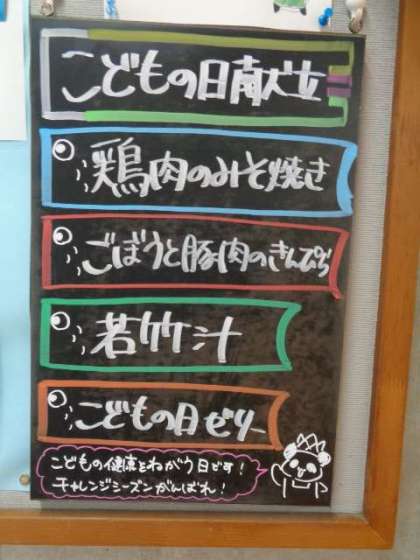 こどもの日献立
鶏肉のみそ焼き
ごぼうと豚肉のきんぴら
若竹汁
こどもの日ゼリー
こどもの健康をねがう日です!
チャレンジシーズンがんばれ!